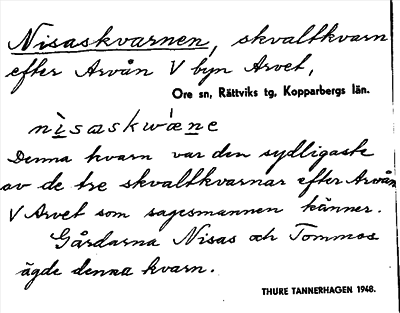 Nisaskvarnen, skvaltkvarn
efter Arvån V byn Arvet,
Ore sn, Rättviks tg, Kopparbergs län.
nìsaskwǽne
Denna kvarn var den sydligaste
av de tre skvaltkvarnar efter Arvån
V Arvet som sagesmannen känner.
Gårdarna Nisas och Tommos
ägde denna kvarn.
THURE TANNERHAGEN 1948.